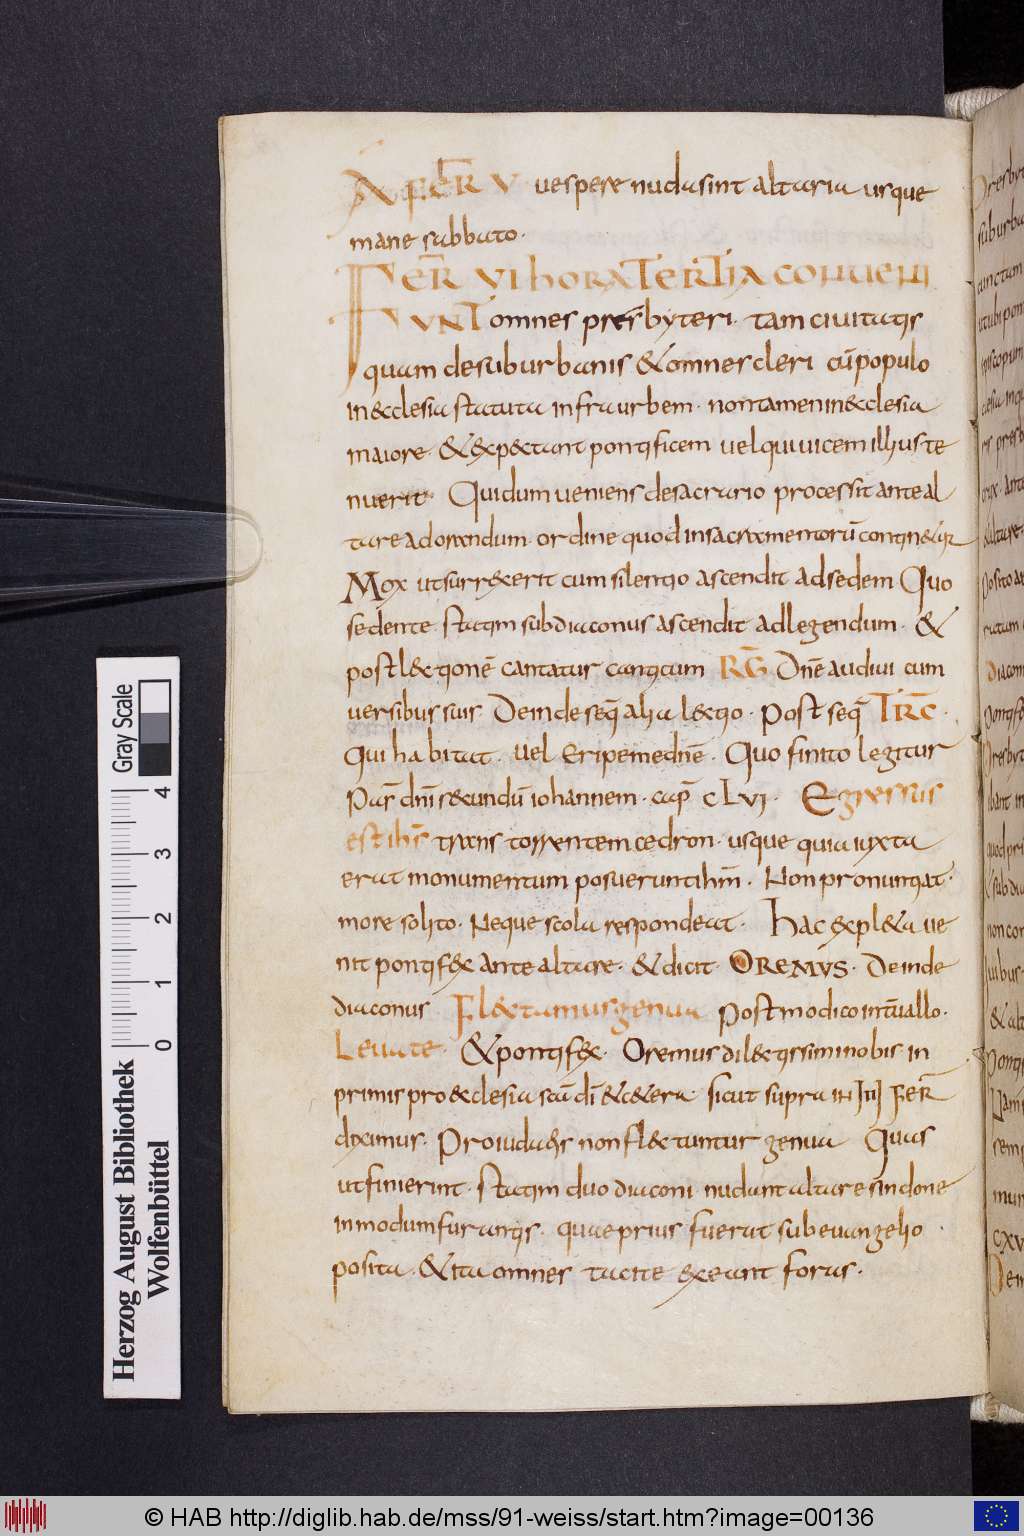 A FER V uespere nuda sint altaria usque
mane sabbato.
FER VI hORA TERTIA CONUENI
UNT omnes presbyteri. tam ciuitatis
quam de suburbanis & omnes cleri cū populo
in &clesia statuta infra urbem. non tamen in &clesia
maiore. & exp&tant pontificem uel qui uicem illius te
nuerit. Qui dum ueniens de sacrario processit ante al
tare ad orandum. ordine quod in sacramentorū contin&ur
Mox ut surr&xerit cum silentio ascendit ad sedem Quo
sedente. statim subdiaconus ascendit ad legendum. &
post l&tionē cantatur canticum RG Dnē audiui cum
uersibus suis. Deinde seq̄ alia l&tio. Post seq̄ TRC.
Qui habitat. uel Eripe me dnē. Quo finito legitur
Pas dnī s&undū iohannem. cap̄ cLvi. Egressus
est ihs trans torrentem cedron. usque quia iuxta
erat monumentum posuerunt ihm. Non pronuntiat.
more solito. Neque scola respondeat. hac expl&a ue
nit pontifex ante altare. & dicit. OREMVS. Deinde
diaconus Fl&tamus genua Post modico interuallo.
Leuate. & pontifex. Oremus dil&tissimi nobis in
primis pro &clesia scā dī & c&era sicut supra in IIII FER
diximus. Pro iudaeis non fl&tuntur genua Quas
ut finierint. statim duo diaconi nudant altare sindone
in modum furantis. quae prius fuerat sub euangelio
posita. & ita omnes tacite exeant foras.
Herzog August Bibliothek
Wolfenbüttel
0 1 2 3 4
Gray Scale
© HAB http://diglib.hab.de/mss/91-weiss/start.htm?image=00136